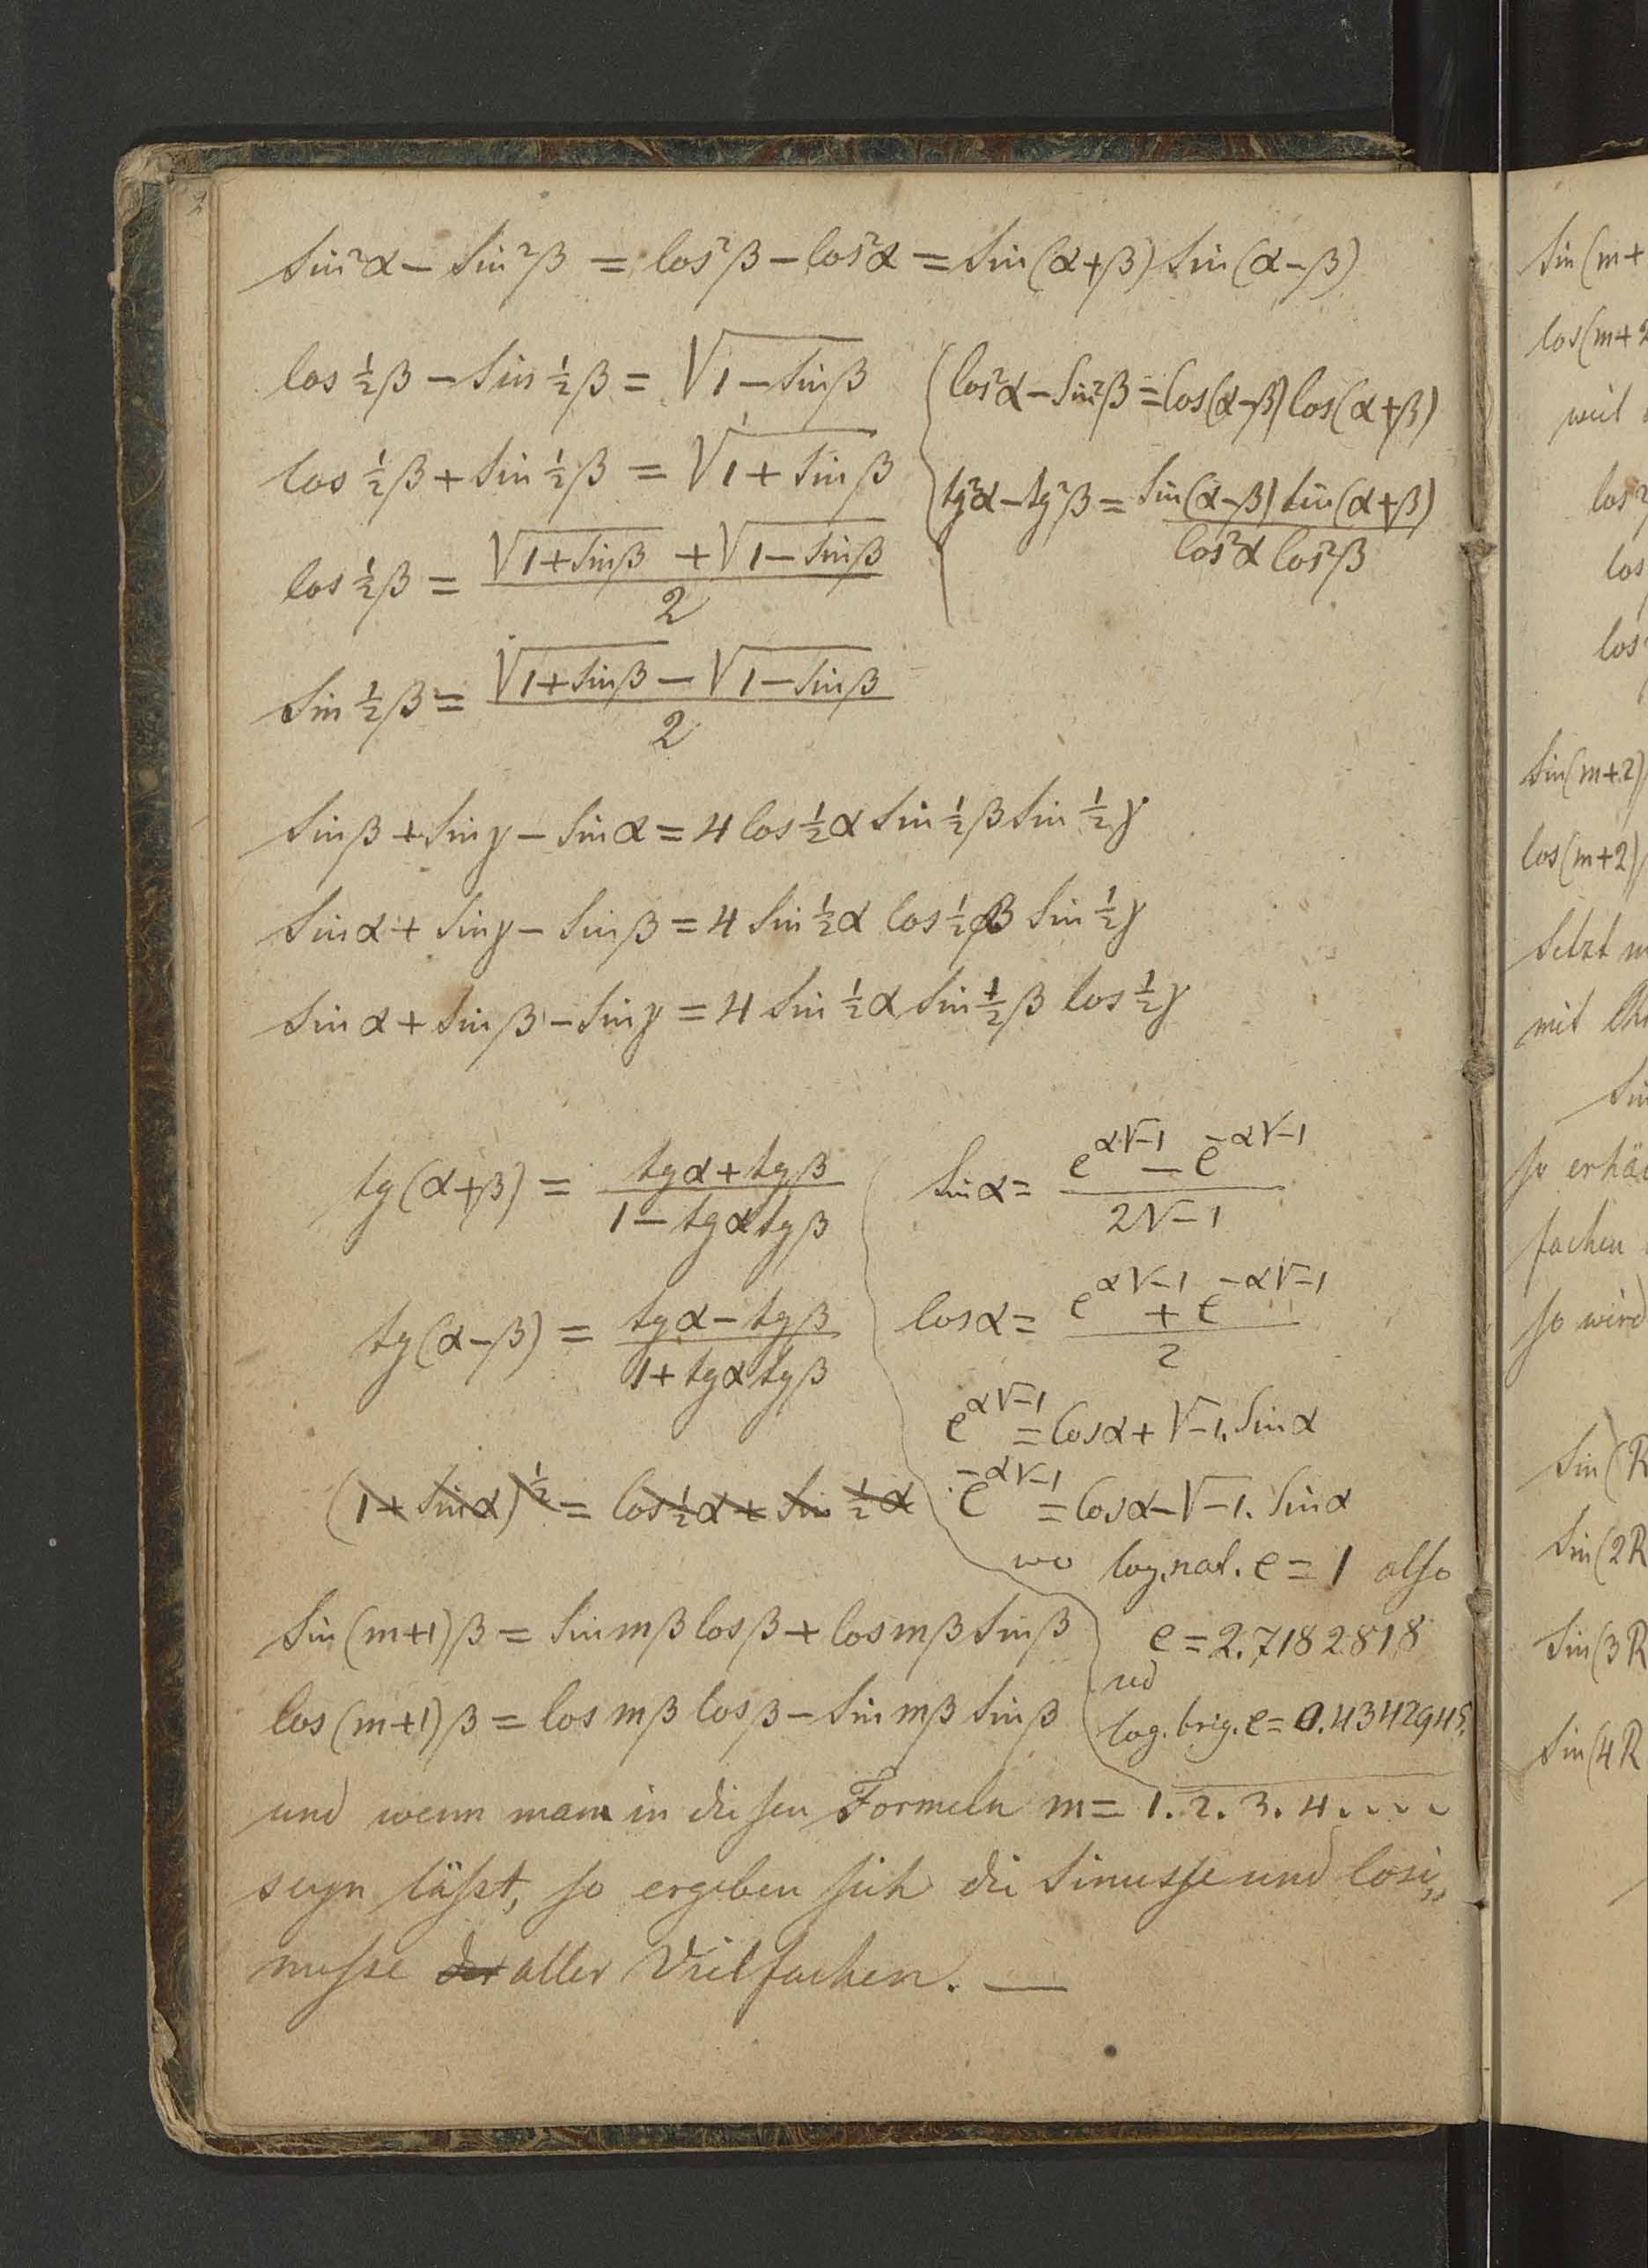 sin²α − sin²β = cos²β − cos²α = sin(α+β) sin(α−β)
cos ½β − sin ½β = √(1−sinβ)
cos ½β + sin ½β = √(1+sinβ)
cos ½β = (√(1+sinβ) + √(1−sinβ)) / 2
sin ½β = (√(1+sinβ) − √(1−sinβ)) / 2
cos²α − sin²β = cos(α−β) cos(α+β)
tg²α − tg²β = sin(α−β) sin(α+β) / cos²α cos²β
sinβ + sinγ − sinα = 4 cos ½α sin ½β sin ½γ
sinα + sinγ − sinβ = 4 sin ½α cos ½β sin ½γ
sinα + sinβ − sinγ = 4 sin ½α sin ½β cos ½γ
tg(α+β) = (tgα + tgβ) / (1 − tgα tgβ)
tg(α−β) = (tgα − tgβ) / (1 + tgα tgβ)
(1+sinα)^½ = cos ½α + sin ½α
sinα = (e^(α√−1) − e^(−α√−1)) / 2√−1
cosα = (e^(α√−1) + e^(−α√−1)) / 2
e^(α√−1) = cosα + √−1. sinα
e^(−α√−1) = cosα − √−1. sinα
wo log.nat. e = 1 also
e = 2.7182818
und
log. brig. e = 0.4342945
sin(m+1)β = sin mβ cosβ + cos mβ sinβ
cos(m+1)β = cos mβ cosβ − sin mβ sinβ
und wenn man in diesen Formeln m = 1. 2. 3. 4. . . . .
seyn läßt, so ergeben sich die Sinusse und Cosi„
nusse der aller Vielfachen. —
sin(m+
cos(m+2
weil
cos²
cos
cos
sin(m+2)
cos(m+2)
setzt m
mit
sin
so erhä
fachen
so wird
sin(R
sin(2R
sin(3R
sin(4R